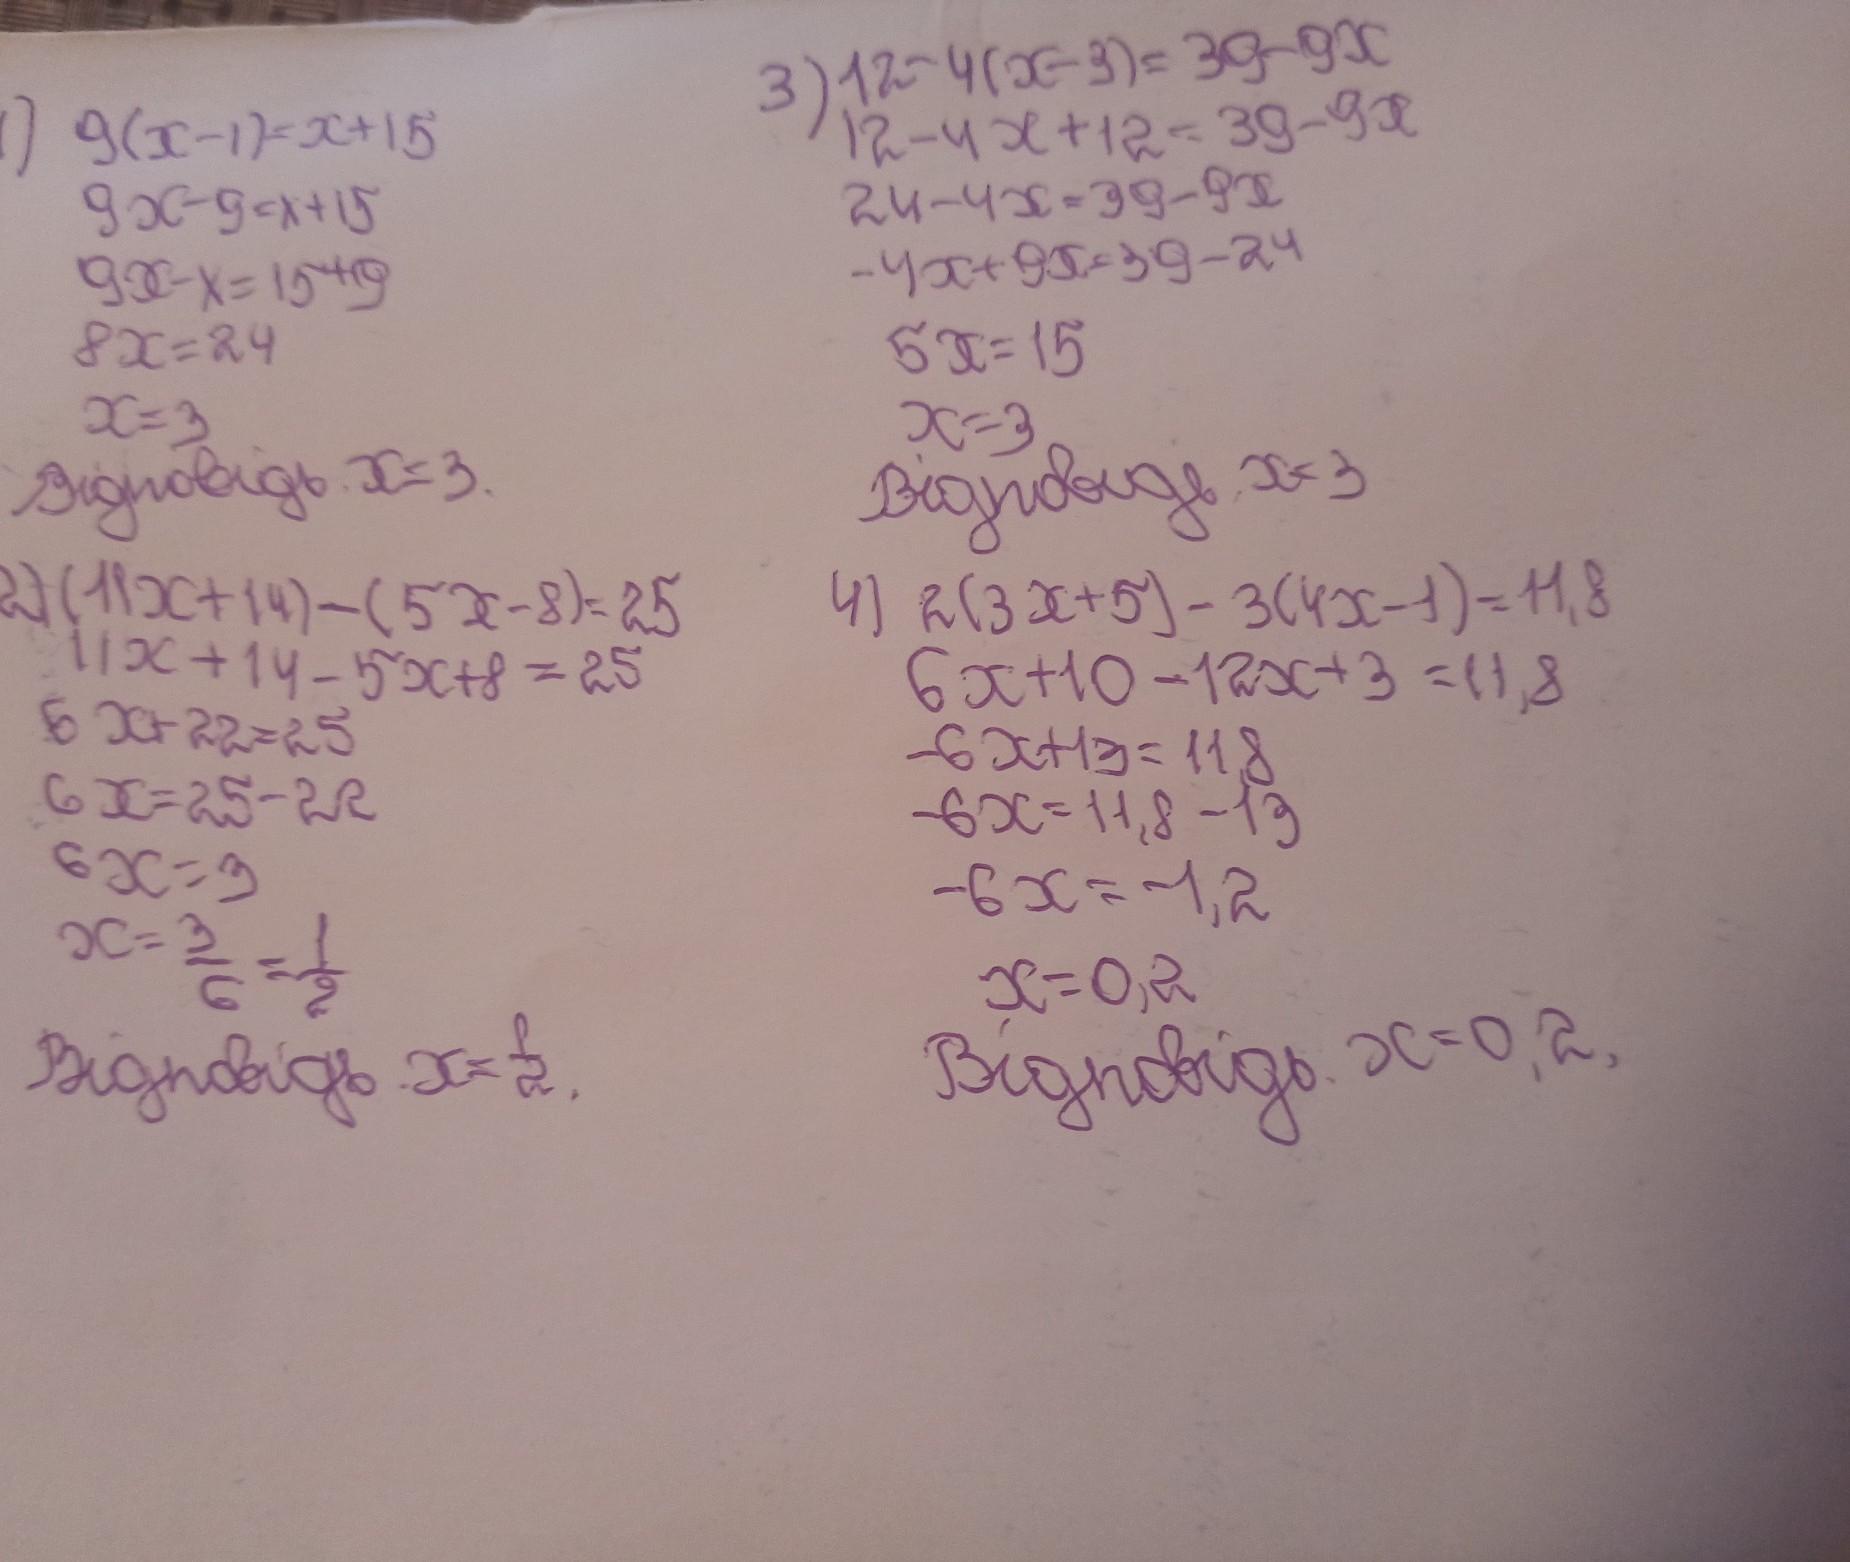 1) 9(x-1)=x+15
9x-9=x+15
9x-x=15+9
8x=24
x=3
Відповідь. x=3.
2) (11x+14)-(5x-8)=25
11x+14-5x+8=25
6x+22=25
6x=25-22
6x=3
x=3/6=1/2
Відповідь. x=1/2.
3) 12-4(x-3)=39-9x
12-4x+12=39-9x
24-4x=39-9x
-4x+9x=39-24
5x=15
x=3
Відповідь. x=3
4) 2(3x+5)-3(4x-1)=11,8
6x+10-12x+3=11,8
-6x+13=11,8
-6x=11,8-13
-6x=-1,2
x=0,2
Відповідь. x=0,2.